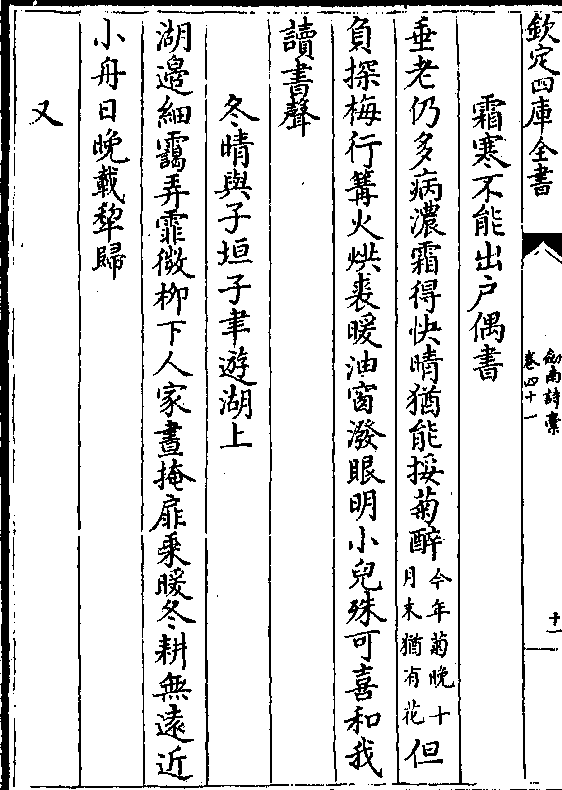 欽定四庫全書
劍南詩稾
卷四十一
十一
霜寒不能出户偶書
垂老仍多病濃霜得快晴猶能挼菊醉今年菊晚十
月末猶有花但
負探梅行篝火烘裘暖油窗潑眼明小兒殊可喜和我
讀書聲
冬晴與子垣子聿遊湖上
湖邊細靄弄霏微柳下人家晝掩扉乘暖冬耕無遠近
小舟日晚載犂歸
又